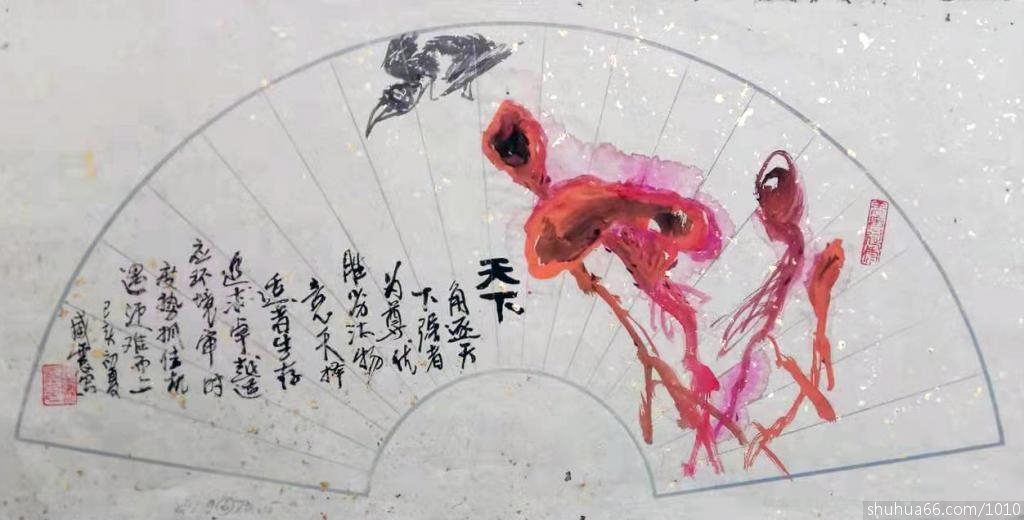 天下
角逐天
下强者
为尊优
胜劣汰物
竞天择
适者生存
追求卓越适
应环境审时
度势抓住机
遇迎难而上
己亥初夏
shuhua66.com/1010